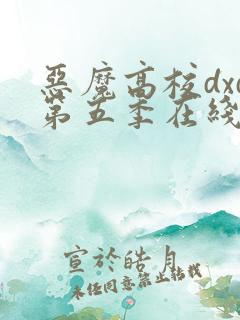 惡魔高校dxd
第五季在綫
宣於皓月
未经同意禁止转载